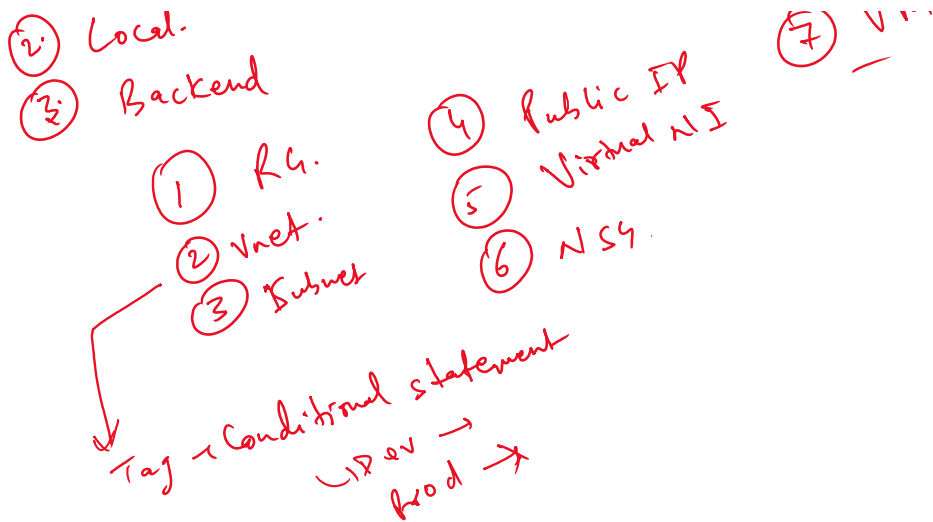 2. Local.
3. Backend
1 RG.
2 Vnet.
3 Subnet
4 Public IP
5 Virtual NI
6 NSG
7
Tag → Conditional statement
Dev →
prod →